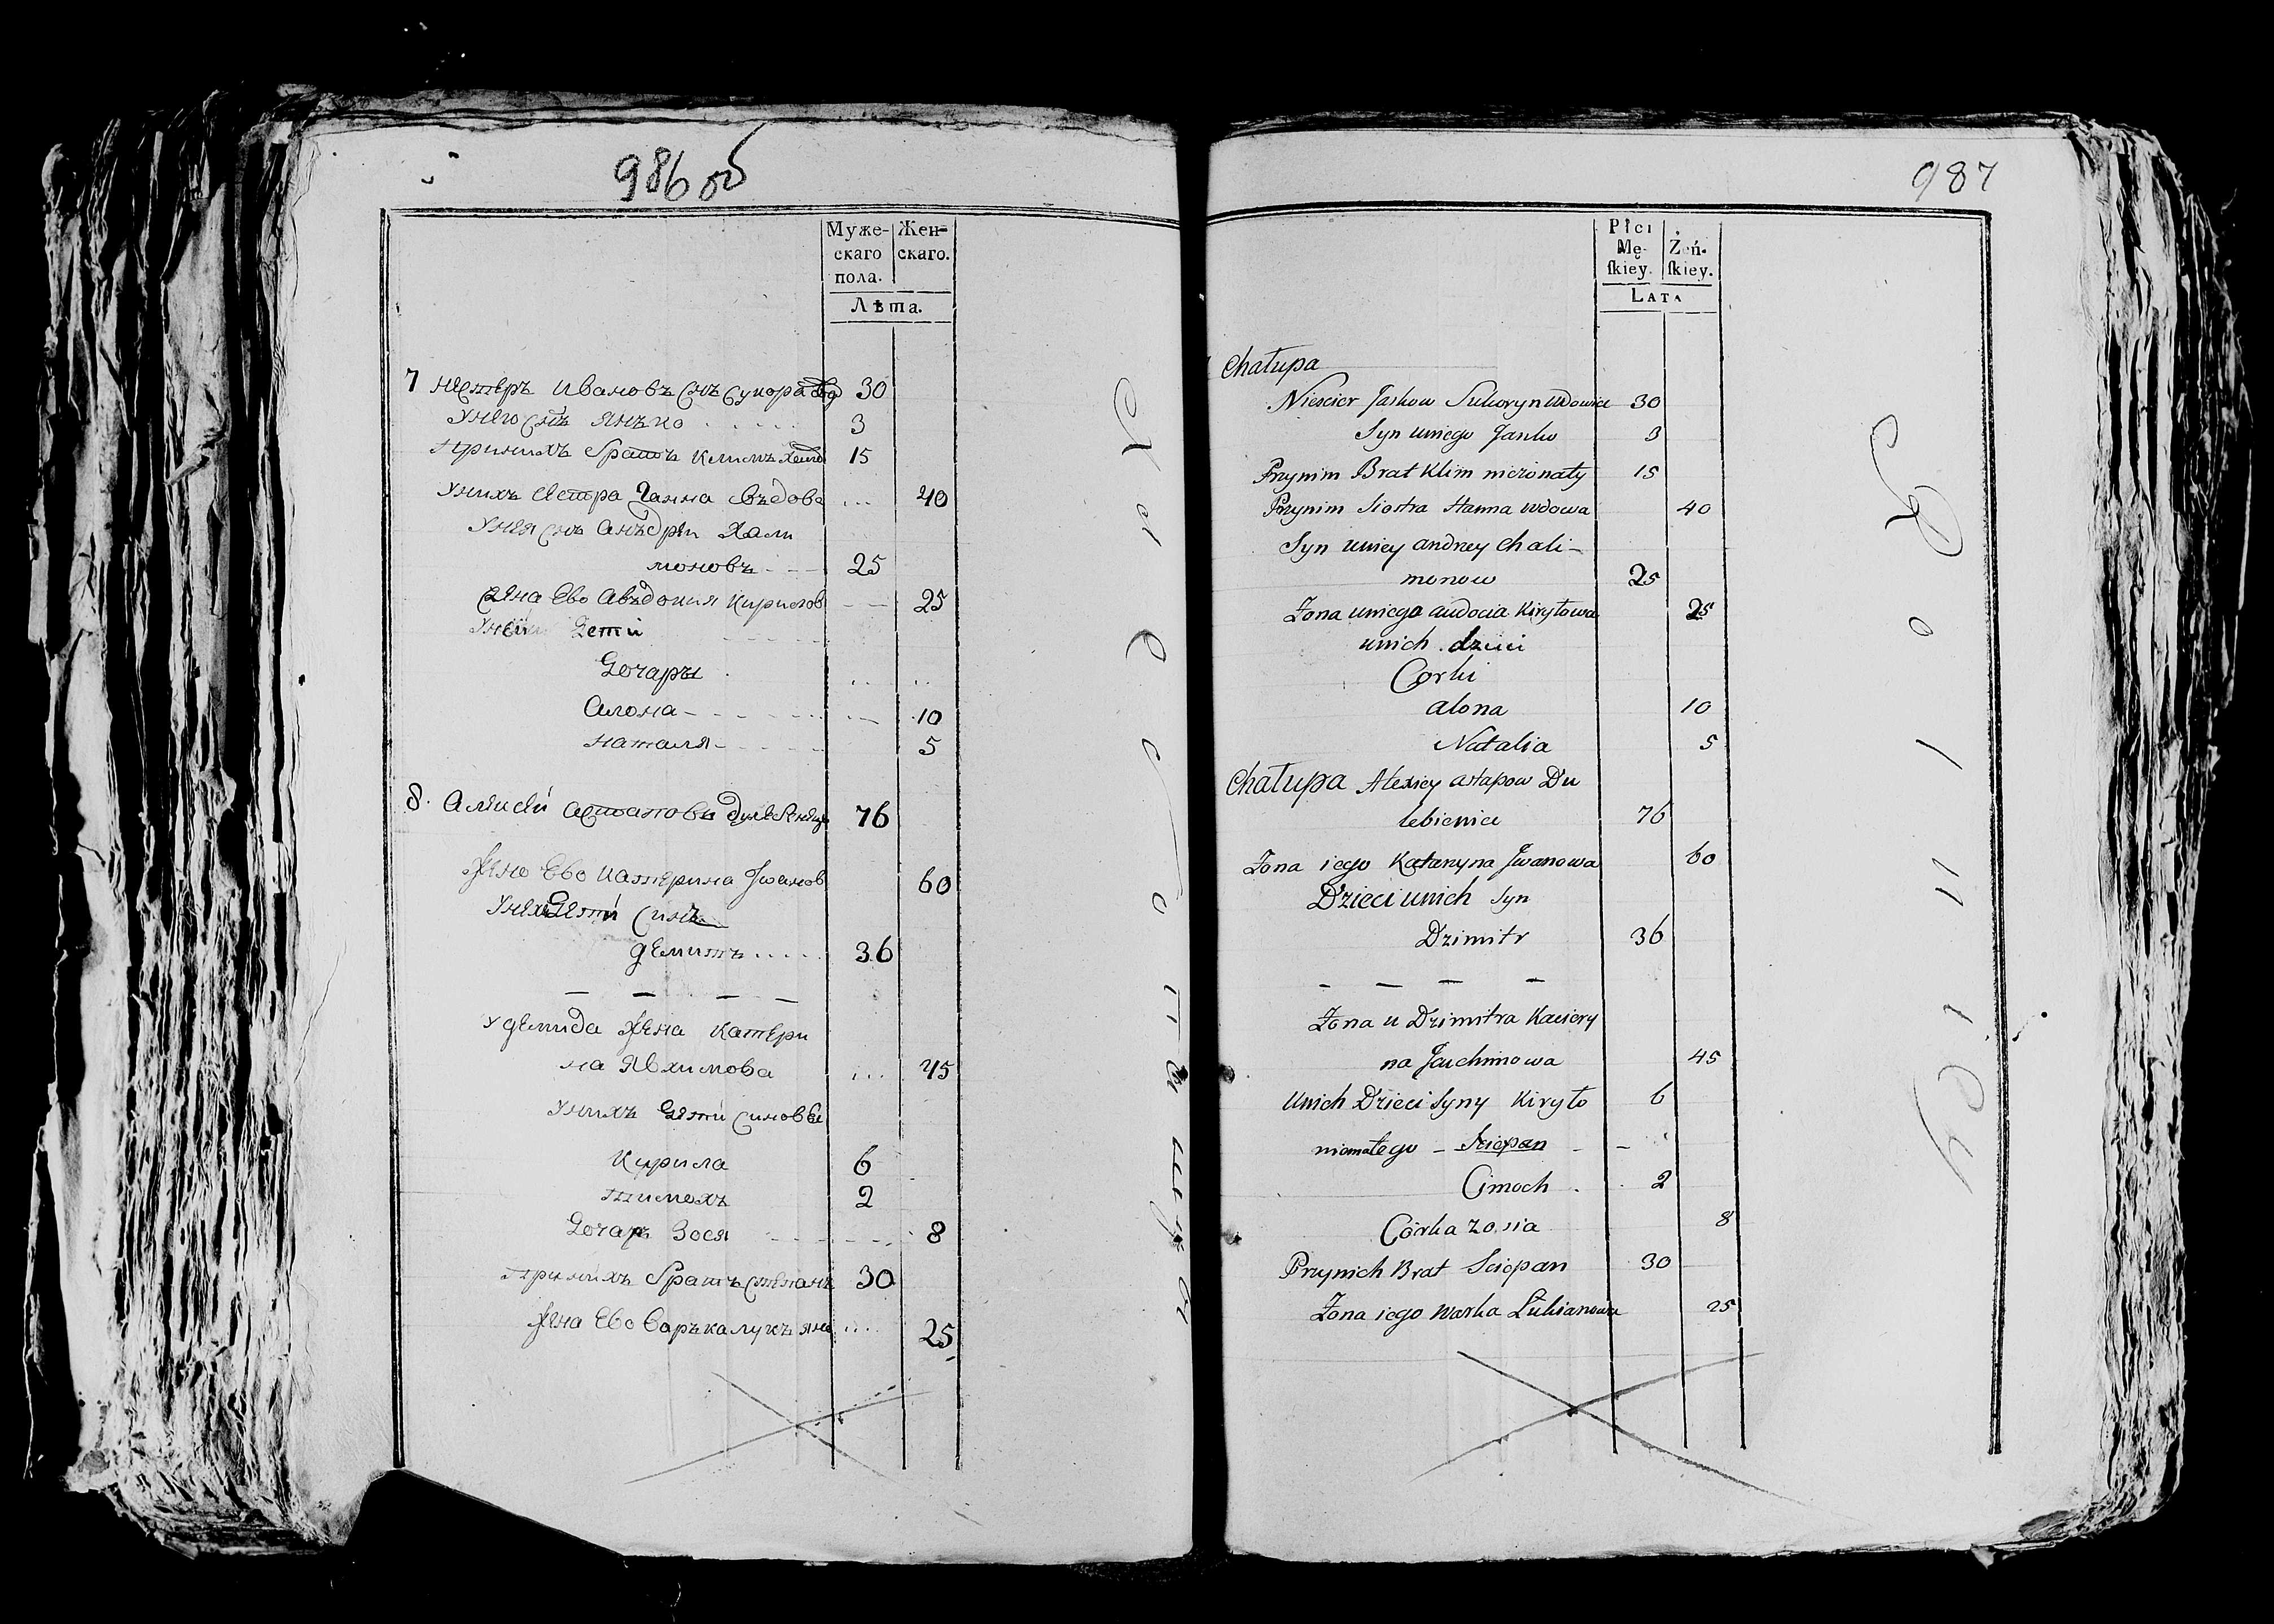 986 об
Муже-
скаго
пола.
Жен-
скаго.
Лѣта.
7 нестеръ Ивановъ снъ Сукора
30
Унего снъ янъко
3
Принихъ братъ климъ
15
Унихъ сестра Ганна въдова
40
Унея снъ анъдрей Хали
моновъ
25
жена Ево авъдокия Кирилов
25
дети
Дочары
алона
10
наталя
5
8. Алексей астаповъ
76
Жена Ево катерина Иванов
60
дети синъ
демитъ
36
У демида жена катери
на Явхимова
45
Унихъ дети синовеи
Кирила
6
тимохъ
2
Дочаръ Зося
8
Принихъ братъ степанъ
30
Жена Ево варъка лукъяно
25
987
Płci
Mę-
ſkiey.
Żeń-
ſkiey.
LATA
Chałupa
Niescier Jaskow Sukoryn wdowiec
30
Syn uniego Janko
3
Przynim Brat Klim niezonaty
15
Przynim Siostra Hanna wdowa
40
Syn uniey andrzey Chali-
monow
25
Zona uniego audocia Kiryłowa
25
unich dzieci
Corki
alona
10
Natalia
5
Chałupa Alexiey astapow Du
lebieniec
76
Zona iego Katarzyna Jwanowa
60
Dzieci unich Syn
Dzimitr
36
Zona u Dzimitra Kaciery
na Jauchimowa
45
Unich Dzieci Syny Kiryło
6
Sciepan
Cimoch
2
Córka zosia
8
Przynich Brat Sciepan
30
Zona iego warka Łukianowa
25